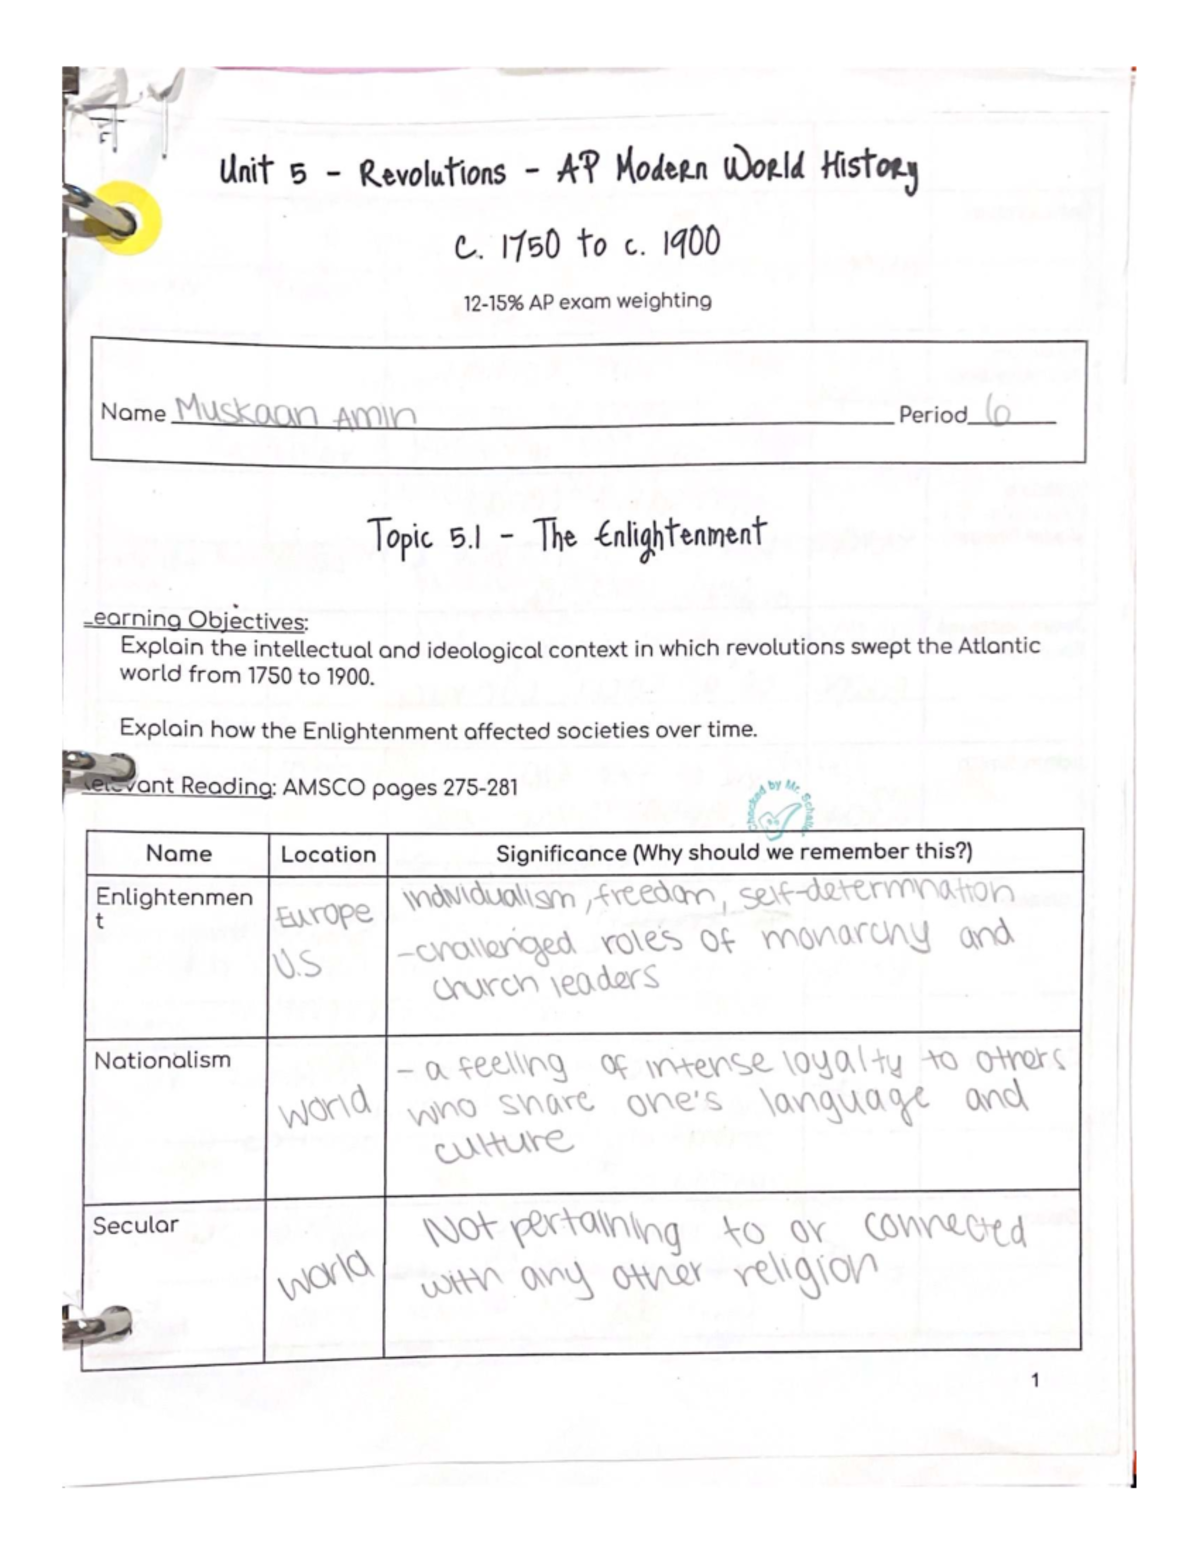 Unit 5 - Revolutions - AP Modern World History
c. 1750 to c. 1900
12-15% AP exam weighting
Name Muskaan Amin Period 6
Topic 5.1 - The Enlightenment
earning Objectives:
Explain the intellectual and ideological context in which revolutions swept the Atlantic
world from 1750 to 1900.
Explain how the Enlightenment affected societies over time.
vant Reading: AMSCO pages 275-281
Checked by Mr.
Name Location Significance (Why should we remember this?)
Enlightenmen
t
Europe
U.S
individualism, freedom, self-determination
-challenged roles of monarchy and
church leaders
Nationalism
World
- a feeling of intense loyalty to others
who share one's language and
culture
Secular
World
Not pertaining to or connected
with any other religion
1